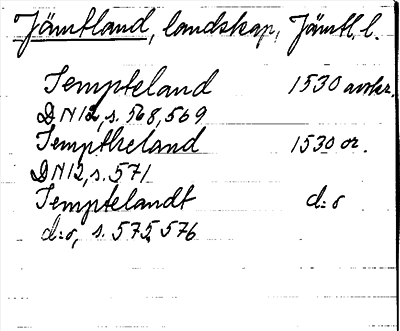 Jämtland, landskap, Jämtl. l.
Jempteland 1530 avskr.
DN 12, s. 568, 569
Jemptheland 1530 or.
DN 12, s. 571
Jemptelandt d:o
d:o, s. 575, 576